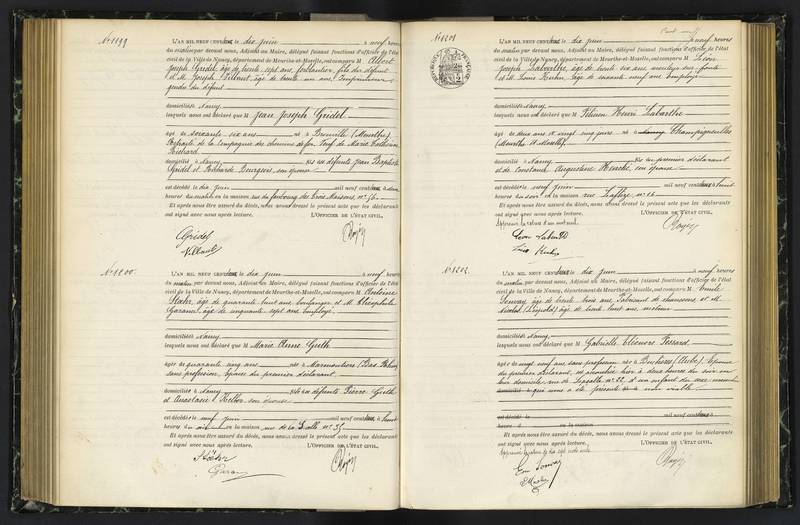 N° 1199
L'AN MIL NEUF CENT deux le dix juin à neuf heures
du matin par devant nous, Adjoint au Maire, délégué faisant fonctions d'officier de l'état
civil de la Ville de Nancy, département de Meurthe-et-Moselle, ont comparu M Albert
Joseph Gridel, âgé de trente sept ans, ferblantier, fils du défunt
et M. Joseph Villaut, âgé de trente un ans, Imprimeur
gendre du défunt
domiciliés à Nancy
lesquels nous ont déclaré que M Jean Joseph Gridel
âgé de soixante six ans né à (Meurthe)
Retraité de la Compagnie des chemins de fer, Veuf de Marie Catherine
domicilié à Nancy fils de défunts Jean Baptiste
Gridel et Barbe Bourgeois, son épouse
est décédé le dix juin mil neuf cent deux à deux
heures du matin en la maison rue du faubourg des trois Maisons, n° 56.
Et après nous être assuré du décès, nous avons dressé le présent acte que les déclarants
ont signé avec nous après lecture. L'OFFICIER DE L'ÉTAT CIVIL,
Gridel
Villaut
N° 1200.
L'AN MIL NEUF CENT deux le dix juin à neuf heures
du matin par devant nous, Adjoint au Maire, délégué faisant fonctions d'officier de l'état
civil de la Ville de Nancy, département de Meurthe-et-Moselle, ont comparu M Antoine
âgé de quarante huit ans boulanger et M. Théophile
âgé de cinquante sept ans employé
domiciliés à Nancy
lesquels nous ont déclaré que M Marie Anne Guth
âgée de quarante cinq ans née à Marmoutiers (Bas Rhin)
sans profession, Epouse du premier déclarant
domiciliée à Nancy fille de défunts Pierre Guth
et Anastasie son épouse
est décédée le neuf juin mil neuf cent deux à huit
heures du en la maison rue de la
Et après nous être assuré du décès, nous avons dressé le présent acte que les déclarants
ont signé avec nous après lecture. L'OFFICIER DE L'ÉTAT CIVIL,
N° 1201
L'AN MIL NEUF CENT deux le dix juin à neuf heures
du matin par devant nous, Adjoint au Maire, délégué faisant fonctions d'officier de l'état
civil de la Ville de Nancy, département de Meurthe-et-Moselle, ont comparu M Léon
Joseph Labarthe, âgé de trente six ans
et M. Louis âgé de soixante neuf ans employé
domiciliés à Nancy
lesquels nous ont déclaré que M Henri Labarthe
âgé de deux ans et vingt cinq jours né à Champigneulles
(Meurthe et Moselle)
domicilié à Nancy fils du premier déclarant
et de Augustine son épouse
est décédé le neuf juin mil neuf cent deux à huit
heures du soir en la maison rue Laffitte n° 16
Et après nous être assuré du décès, nous avons dressé le présent acte que les déclarants
ont signé avec nous après lecture. L'OFFICIER DE L'ÉTAT CIVIL,
N° 1202.
L'AN MIL NEUF CENT deux le dix juin à neuf heures
du matin par devant nous, Adjoint au Maire, délégué faisant fonctions d'officier de l'état
civil de la Ville de Nancy, département de Meurthe-et-Moselle, ont comparu M Emile
âgé de trente trois ans, Fabricant de chaussures et M.
Nicolas (Léopold) âgé de trente huit ans,
domiciliés à Nancy
lesquels nous ont déclaré que M Gabrielle Eléonore Pessard
âgée de vingt neuf ans sans profession née à (Aube), Epouse
du premier déclarant, est accouchée hier à deux heures du soir en
leur domicile, rue de Lasalle n° 22 d'un enfant du sexe masculin
qui nous a été présenté et non viable
est décédé le mil neuf cent deux à
heures d en la maison
Et après nous être assuré du décès, nous avons dressé le présent acte que les déclarants
ont signé avec nous après lecture. L'OFFICIER DE L'ÉTAT CIVIL,